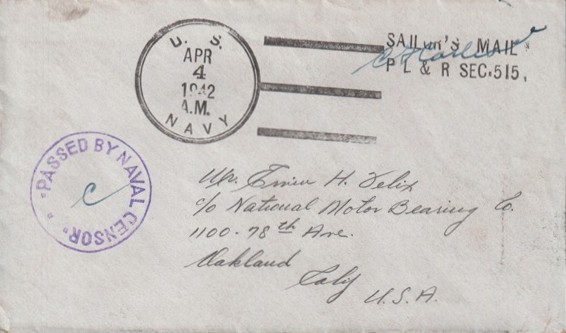 U. S.
APR
4
1942
A.M.
NAVY
SAILOR'S MAIL
P L & R SEC. 515,
PASSED BY NAVAL CENSOR
C
Mr. H. Felix
c/o National Motor Bearing Co.
1100 - 78th Ave.
Oakland
Calif
U.S.A.